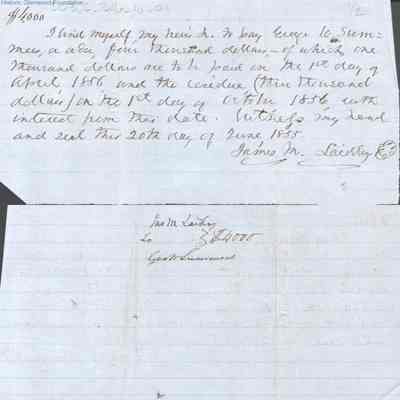 Historic Glenwood Foundation
$4000
I bind myself, my heirs &c. to pay George W. Sum-
mers, a adm, four thousand dollars - of which one
thousand dollars are to be paid on the 1st day of
April 1856 and the residue (three thousand
dollars) on the 1st day of October 1856, with
interest from this date. Witness my hand
and seal this 20th day of June 1855
James M. Laidley
Jas M. Laidley
to } $4000
Geo W Summers